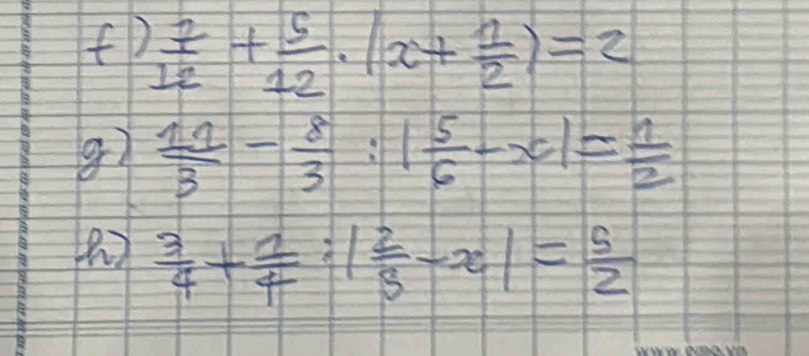 f) 7/12 + 5/12 . (x + 1/2) = 2
g) 11/3 - 8/3 : |5/6 - x| = 1/2
h) 3/4 + 1/4 : |2/5 - x| = 5/2